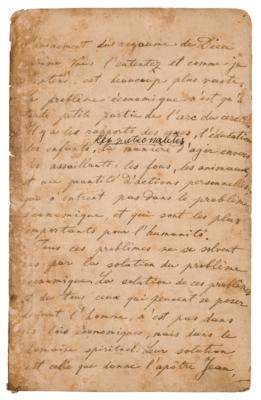 l'avènement du royaume de Dieu
comme vous l'entendez et comme je
l'entends, est beaucoup plus vaste.
Le problème économique n'est qu'une
petite partie de l'arc du cercle.
Il y a les rapports des gens, l'éducation
les nationalités
des enfants, la manière d'agir envers
les assaillants, les fous, les animaux
et une quantité d'actions personnelles,
qui n'entrent pas dans le problème
économique, et qui sont les plus
importants pour l'humanité.
Tous ces problèmes ne se solvent
pas par la solution du problème
économique. La solution de ces problèmes
et de tous ceux qui peuvent se poser
devant l'homme, n'est pas dans
les lois économiques, mais dans le
domaine spirituel. Leur solution
est celle que donne l'apôtre Jean,